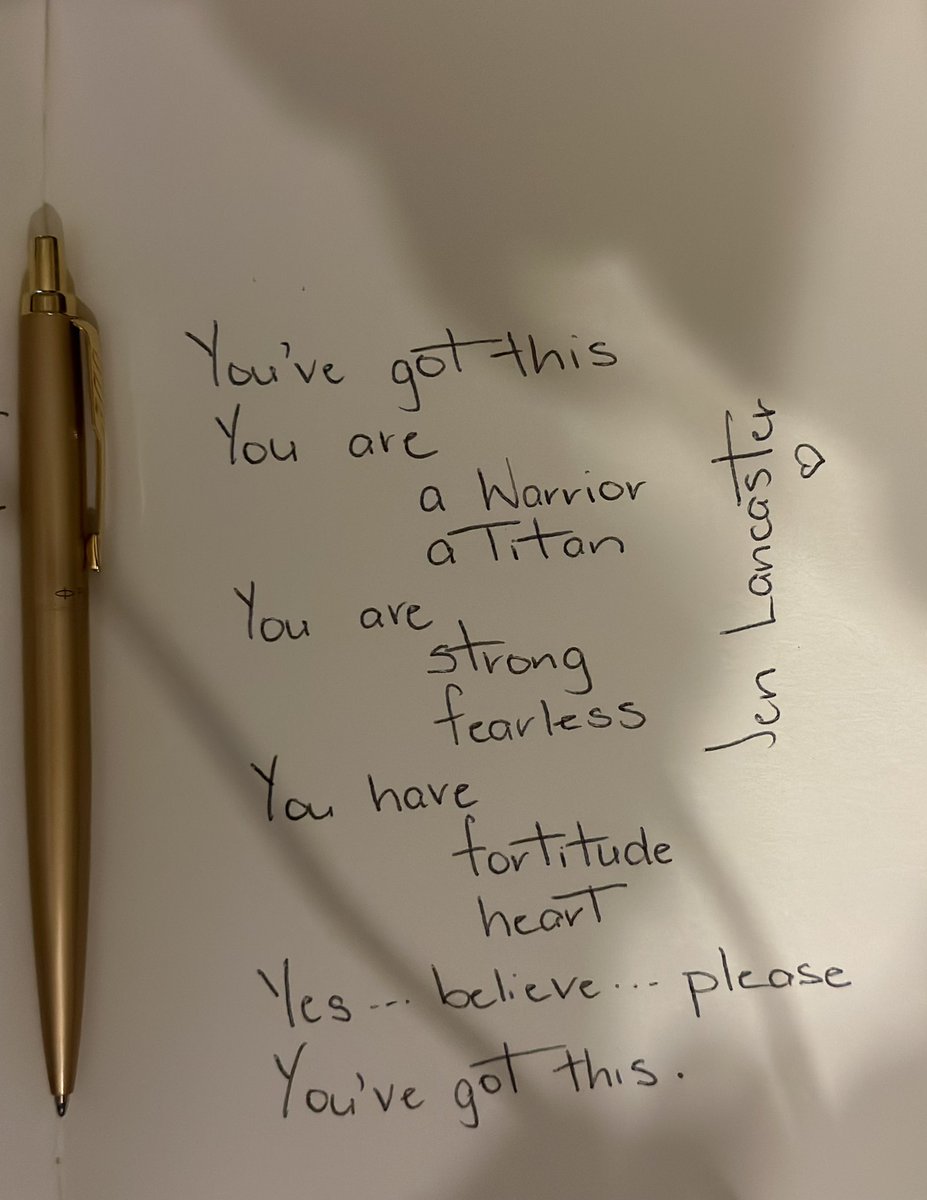 You've got this
You are
a Warrior
a Titan
You are
strong
fearless
You have
fortitude
heart
Yes... believe... please
You've got this.
Jen Lancaster